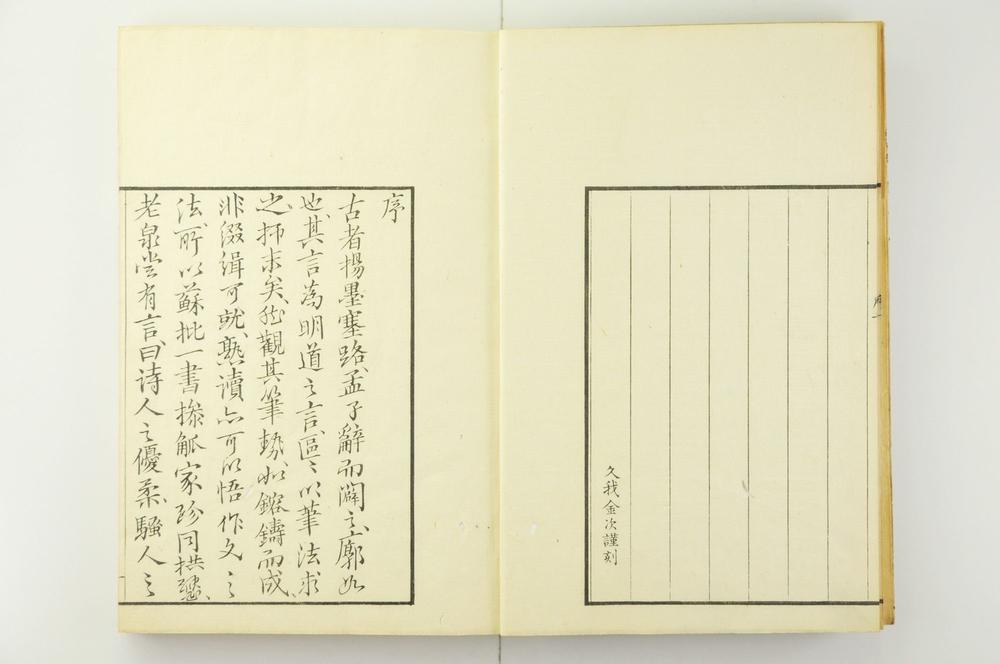 久我金次謹刻
序
古者揚墨塞路孟子辭而闢之廓如
也其言為明道之言區〻以筆法求
之抑末矣然觀其筆勢如鎔鑄而成
非綴緝可就熟讀亦可以悟作文之
法所以蘇批一書操觚家珍同拱璧
老泉嘗有言曰詩人之優柔騷人之